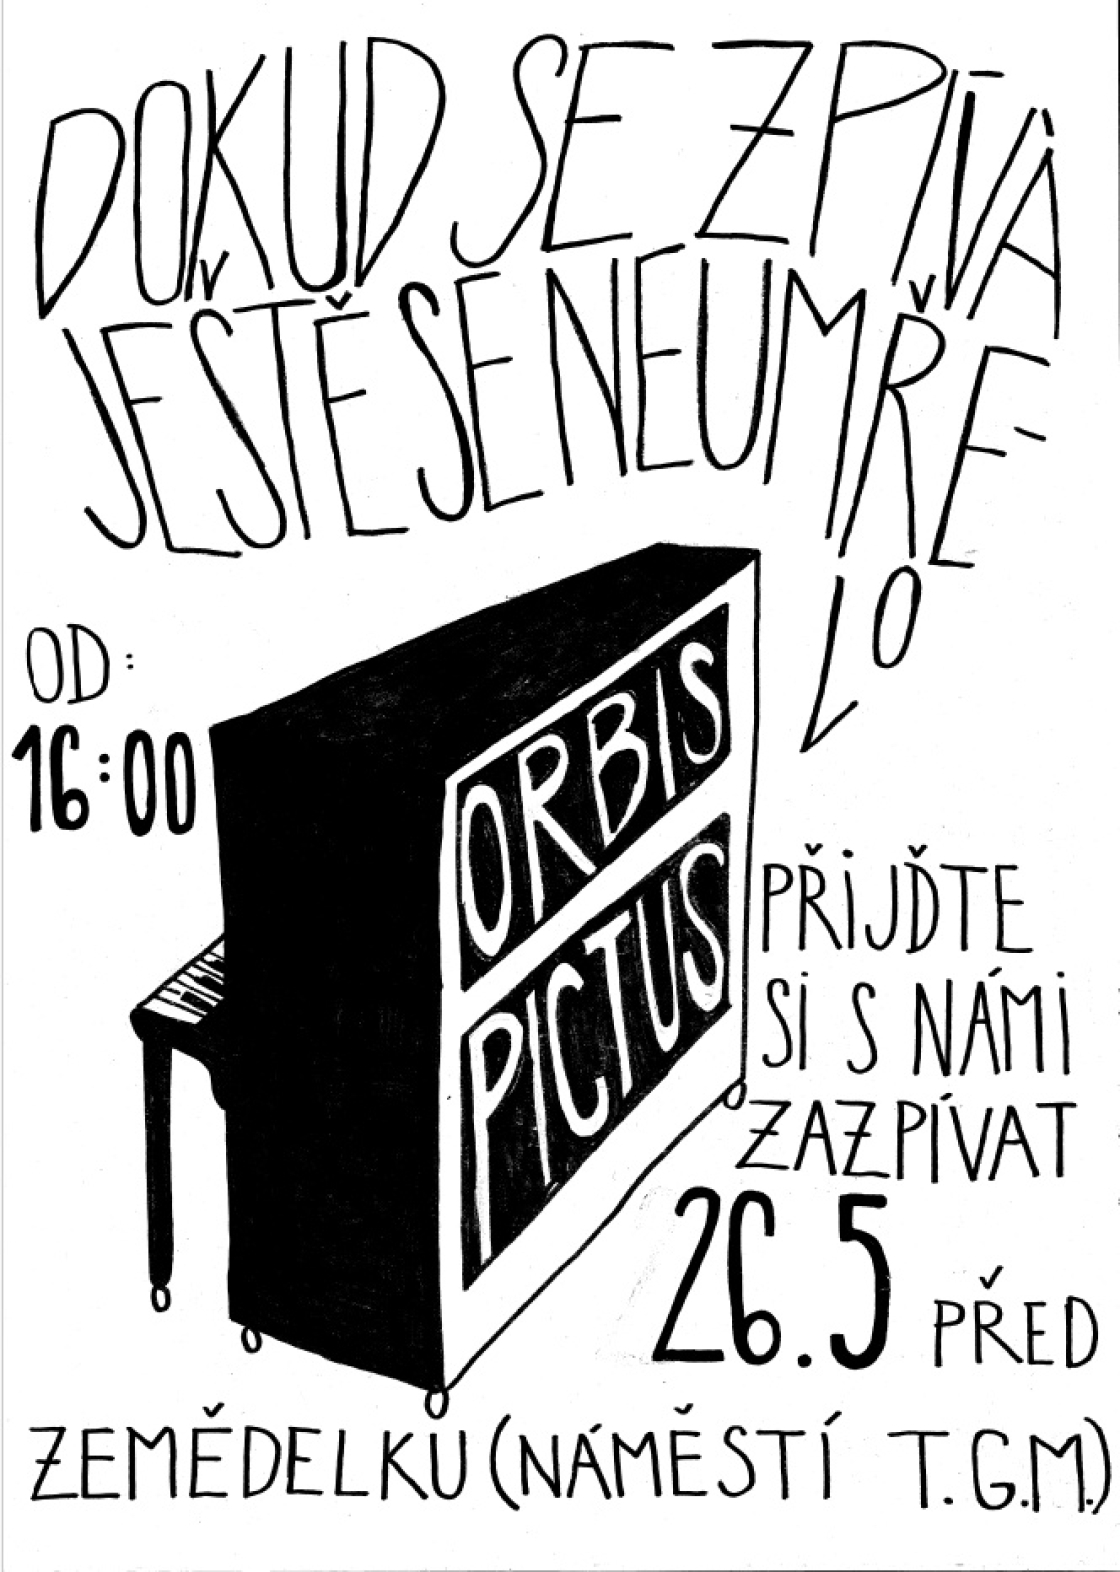 DOKUD SE ZPÍVÁ
JEŠTĚ SE NEUMŘE-
LO
OD:
16:00
ORBIS
PICTUS
PŘIJĎTE
SI S NÁMI
ZAZPÍVAT
26.5 PŘED
ZEMĚDELKU (NÁMĚSTÍ T.G.M.)